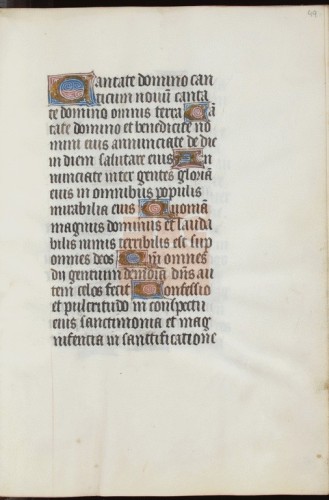 49
Cantate domino can
ticum novū canta
te domino omnis terra Cā
tate domino et benedicite no
mini eius annunciate de die
in diem salutare eius An
nunciate inter gentes gloriā
eius in omnibus populis
mirabilia eius Quoniā
magnus dominus et lauda
bilis nimis terribilis est sup
omnes deos Qm̄ omnes
dii gentium demōia dn̄s au
tem celos fecit Confessio
et pulcritudo in conspectu
eius sanctimonia et mag
nificencia in sanctificatione